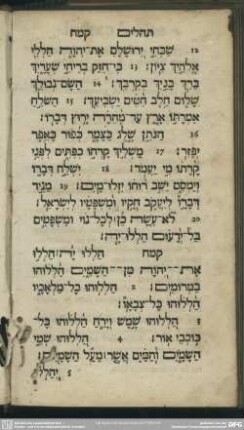 תהלים קמח
12 שבחי ירושלם את־יהוה הללי
אלהיך ציון: 13 כי־חזק בריחי שעריך
ברך בניך בקרבך: 14 השם־גבולך
שלום חלב חטים ישביעך: 15 השלח
אמרתו ארץ עד־מהרה ירוץ דברו:
16 הנתן שלג כצמר כפור כאפר
יפזר: 17 משליך קרחו כפתים לפני
קרתו מי יעמד: 18 ישלח דברו
וימסם ישב רוחו יזלו־מים: 19 מגיד
דברו ליעקב חקיו ומשפטיו לישראל:
20 לא־עשה כן לכל־גוי ומשפטים
בל־ידעום הללו־יה:
קמח הללו יה הללו
את־יהוה מן־השמים הללוהו
במרומים: 2 הללוהו כל־מלאכיו
הללוהו כל־צבאו:
3 הללוהו שמש וירח הללוהו כל־
כוכבי אור: 4 הללוהו שמי
השמים והמים אשר מעל השמים:
5 יהללו